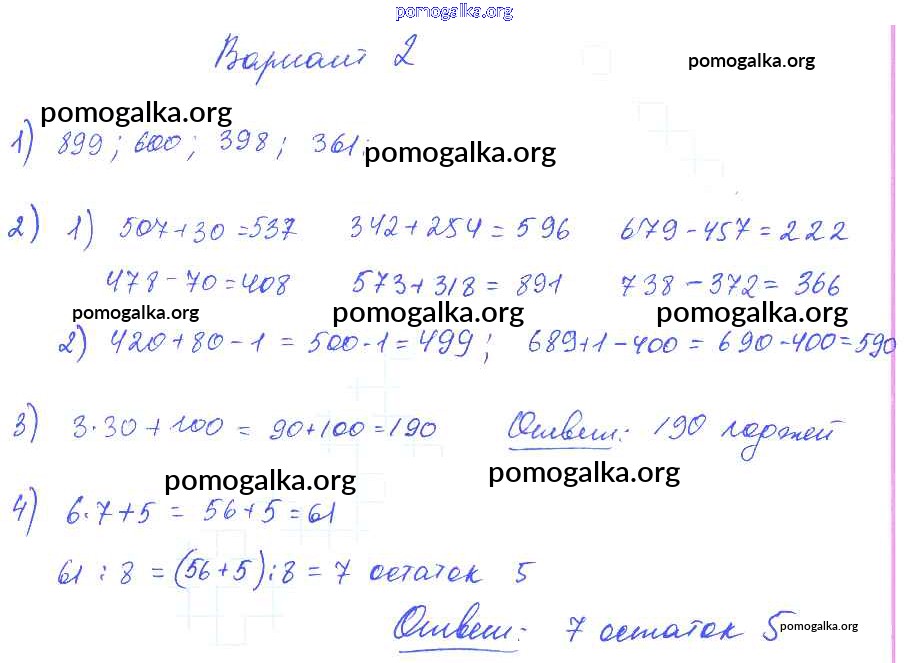 pomogalka.org
Вариант 2
pomogalka.org
pomogalka.org
1) 899; 600; 398; 361;
pomogalka.org
2) 1) 507+30=537 342+254=596 679-457=222
478-70=408 573+318=891 738-372=366
pomogalka.org pomogalka.org pomogalka.org
2) 420+80-1=500-1=499; 689+1-400=690-400=590
3) 3·30+100=90+100=190 Ответ: 190 гаджей
pomogalka.org pomogalka.org
4) 6·7+5=56+5=61
61:8=(56+5):8=7 остаток 5
Ответ: 7 остаток 5
pomogalka.org